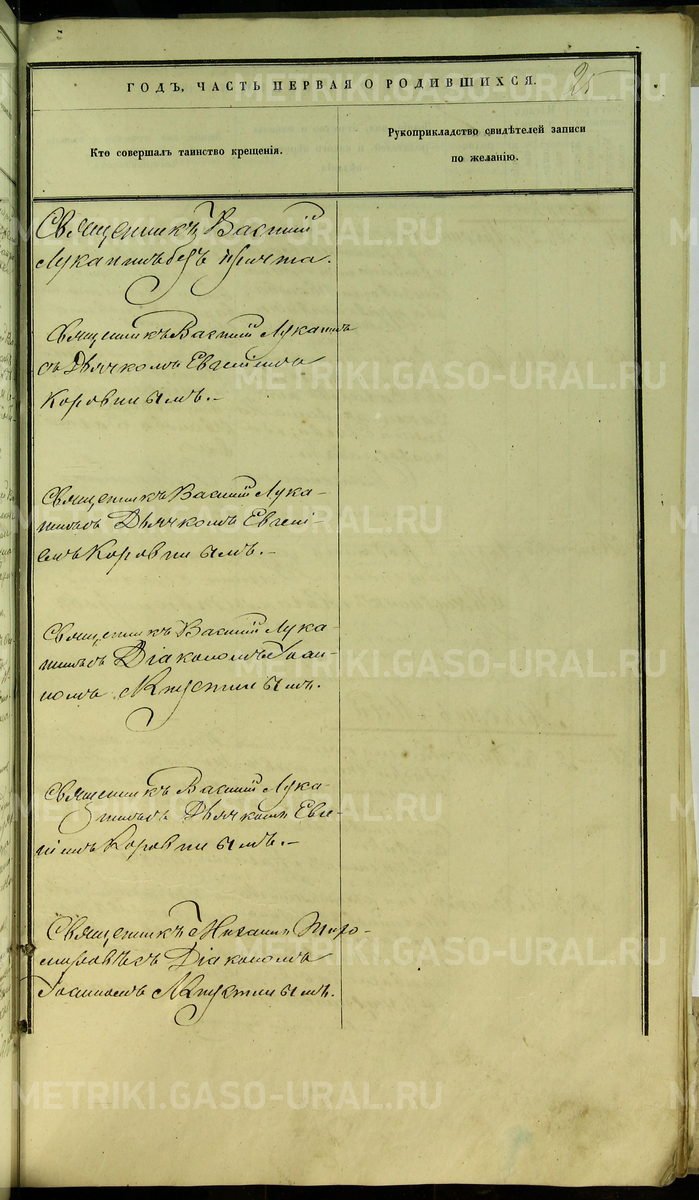 ГОДЪ, ЧАСТЬ ПЕРВАЯ О РОДИВШИХСЯ.
25
Кто совершалъ таинство крещенія.
Рукоприкладство свидѣтелей записи
по желанію.
Священникъ Василій
Лукапинъ безъ причта.
Священникъ Василій Лукапинъ
съ Дьячкомъ Евгеніемъ
Коровинымъ.-
Священникъ Василій Лука-
пинъ съ Дьячкомъ Евгені-
емъ Коровинымъ.-
Священникъ Василій Лука-
пинъ съ Діакономъ Іоан-
номъ
Священникъ Василій Лука-
пинъ съ Дьячкомъ Евге-
ніемъ Коровинымъ.-
Священникъ
съ Діакономъ
Іоанномъ
METRIKI.GASO-URAL.RU